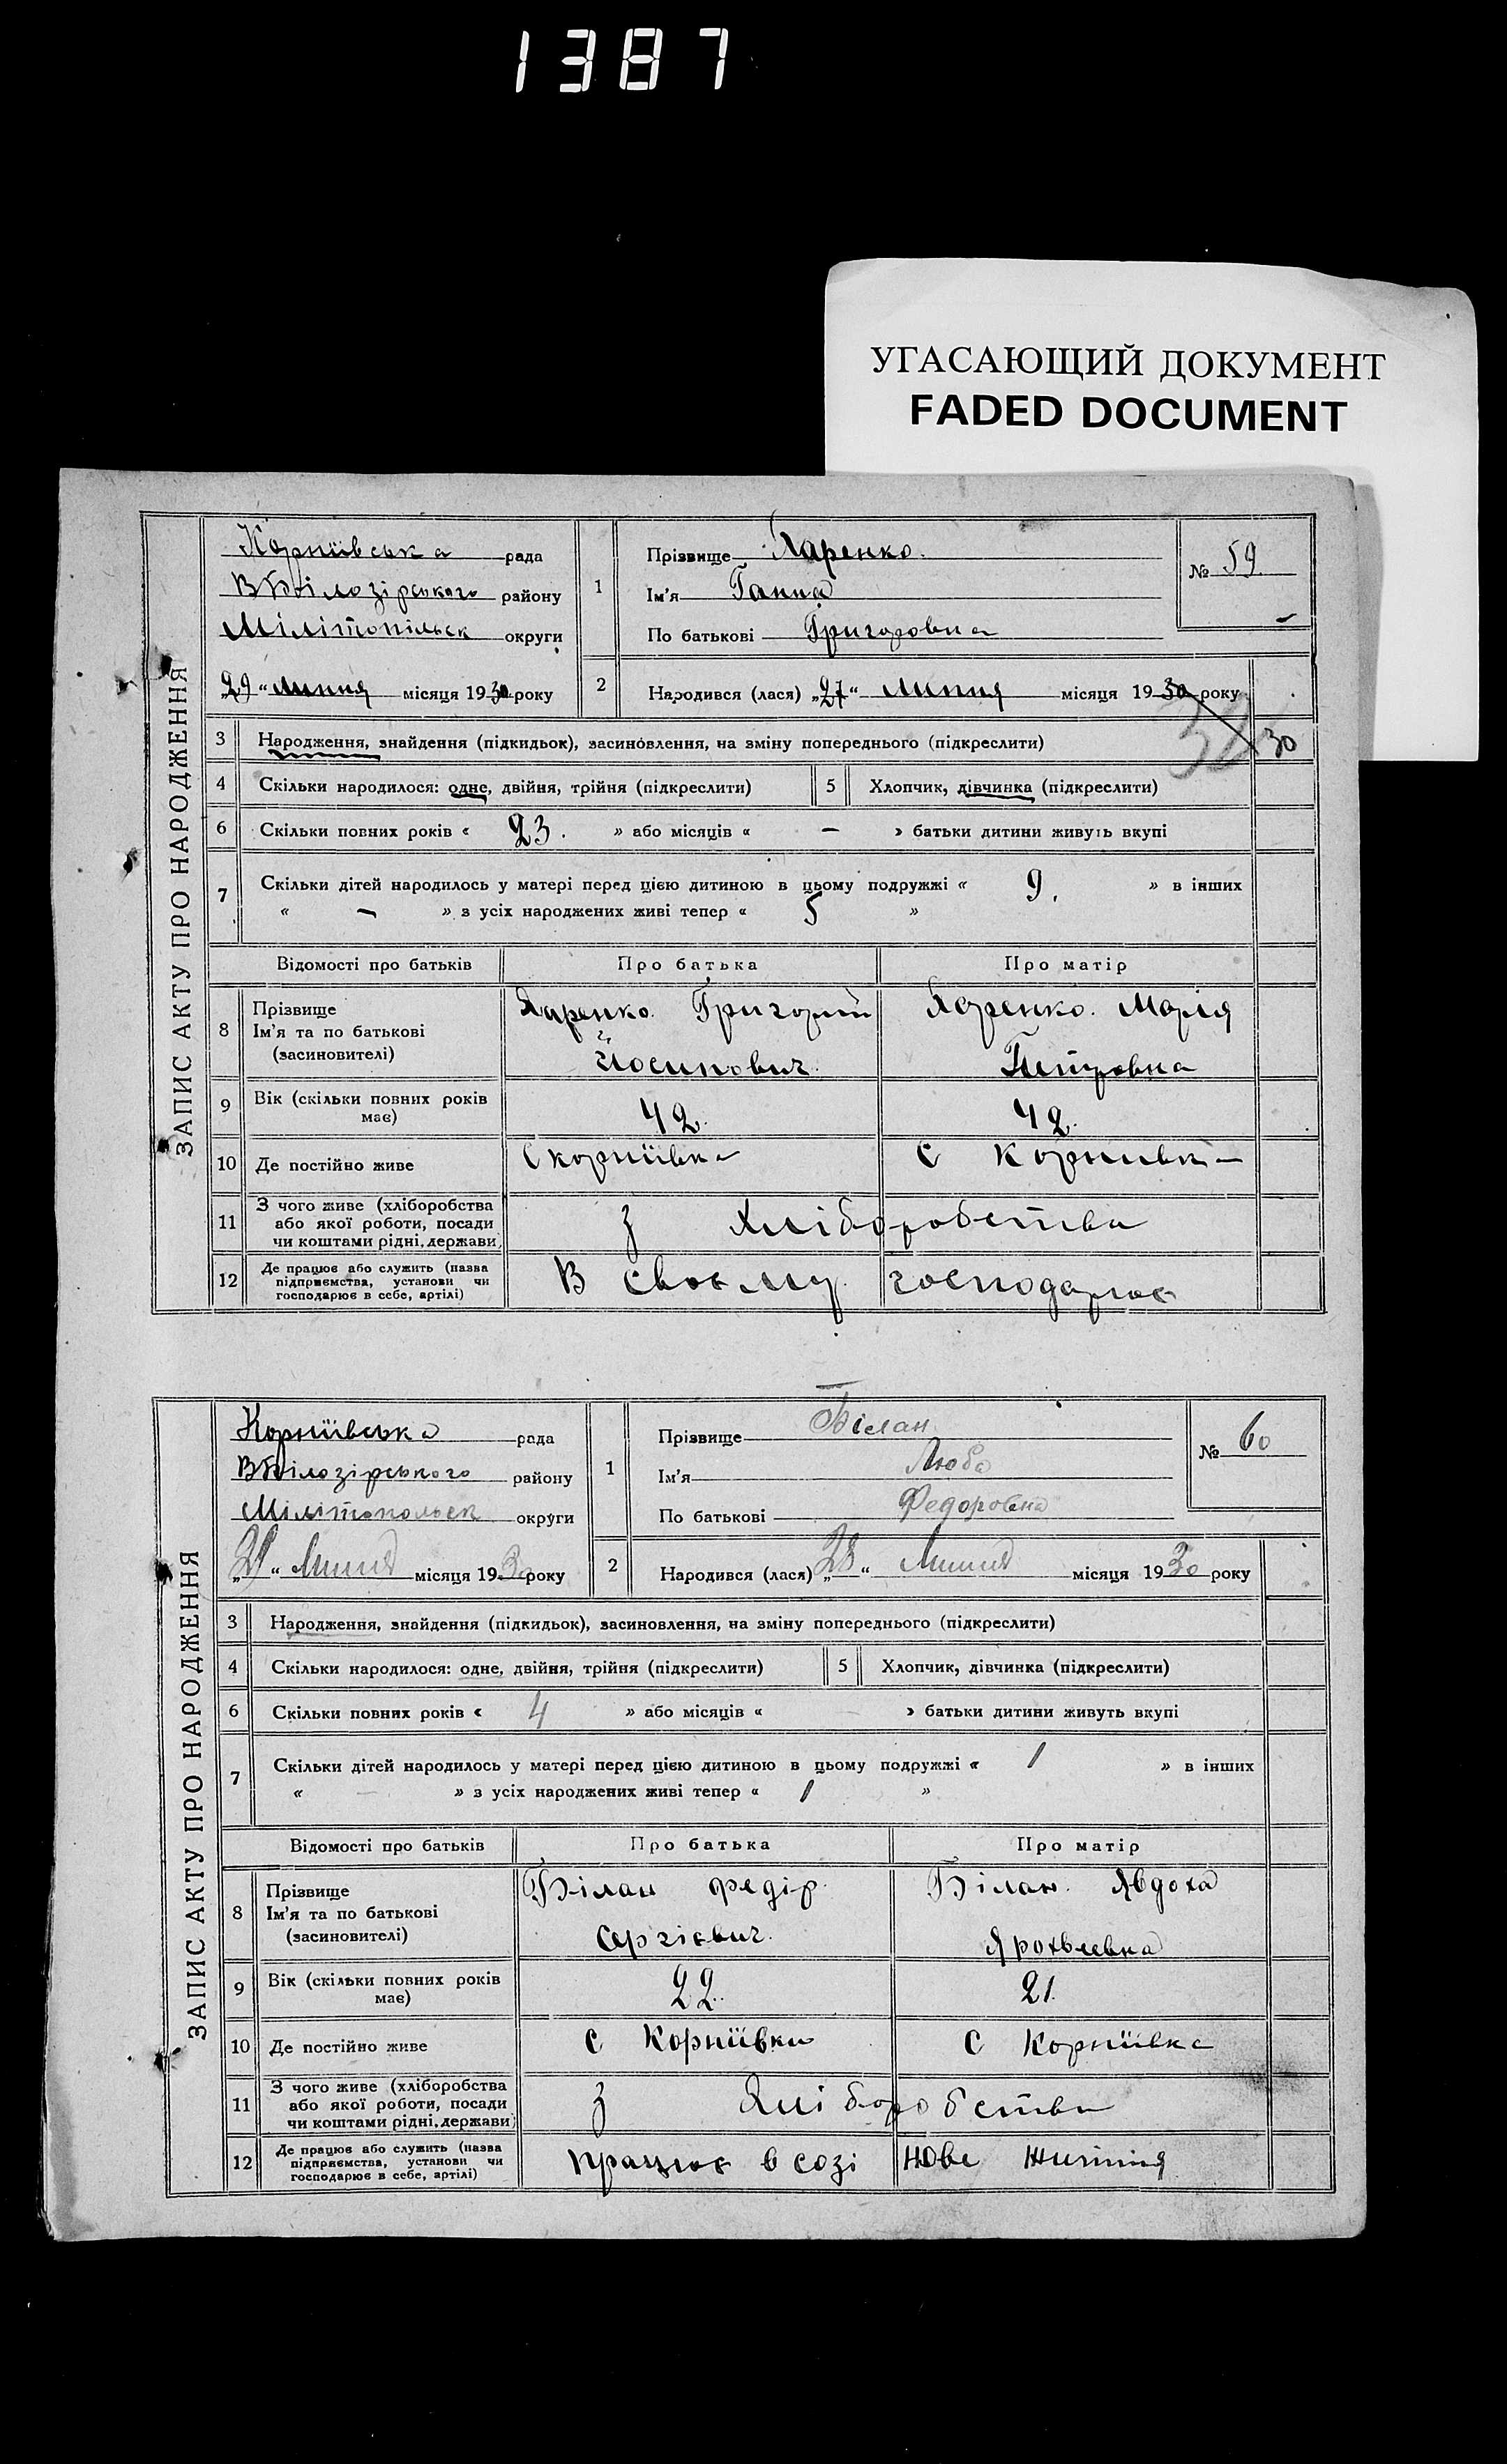 1387
УГАСАЮЩИЙ ДОКУМЕНТ
FADED DOCUMENT
ЗАПИС АКТУ ПРО НАРОДЖЕННЯ
Корніївська рада
ВБілозірського району
Мілітопільск округи
29 " липня місяця 1930 року
1
Прізвище Харенко.
Ім'я Ганна
По батькові Григоровна
№ 59
2
Народився (лася) „27" липня місяця 1930 року
30
3 Народження, знайдення (підкидьок), засиновлення, на зміну попереднього (підкреслити)
4 Скільки народилося: одне, двійня, трійня (підкреслити) 5 Хлопчик, дівчинка (підкреслити)
6 Скільки повних років « 23. » або місяців « — » батьки дитини живуть вкупі
7 Скільки дітей народилось у матері перед цією дитиною в цьому подружжі « 9. » в інших
« — » з усіх народжених живі тепер « 5 »
Відомості про батьків Про батька Про матір
8 Прізвище
Ім'я та по батькові
(засиновителі)
Харенко. Григорий
Йосипович.
Харенко. Марія
Петровна
9 Вік (скільки повних років має) 42. 42.
10 Де постійно живе С Корніївка с Корниівка
11 З чого живе (хліборобства
або якої роботи, посади
чи коштами рідні, держави)
з Хліборобства
12 Де працює або служить (назва
підприємства, установи чи
господарює в себе, артілі)
В своєму господарює
ЗАПИС АКТУ ПРО НАРОДЖЕННЯ
Корніївська рада
ВБілозірського району
Мілітопольск округи
„29 " Липня місяця 1930 року
1
Прізвище Білан
Ім'я Люба
По батькові Федоровна
№ 60
2
Народився (лася) „28 " Липня місяця 1930 року
3 Народження, знайдення (підкидьок), засиновлення, на зміну попереднього (підкреслити)
4 Скільки народилося: одне, двійня, трійня (підкреслити) 5 Хлопчик, дівчинка (підкреслити)
6 Скільки повних років « 4 » або місяців « — » батьки дитини живуть вкупі
7 Скільки дітей народилось у матері перед цією дитиною в цьому подружжі « 1 » в інших
« — » з усіх народжених живі тепер « 1 »
Відомості про батьків Про батька Про матір
8 Прізвище
Ім'я та по батькові
(засиновителі)
Білан Федір.
Сергієвич.
Білан. Явдоха
Ярохвеевна
9 Вік (скільки повних років має) 22. 21.
10 Де постійно живе с Корніївки с Корніївка
11 З чого живе (хліборобства
або якої роботи, посади
чи коштами рідні, держави)
з Хліборобства
12 Де працює або служить (назва
підприємства, установи чи
господарює в себе, артілі)
працює в созі Нове життя